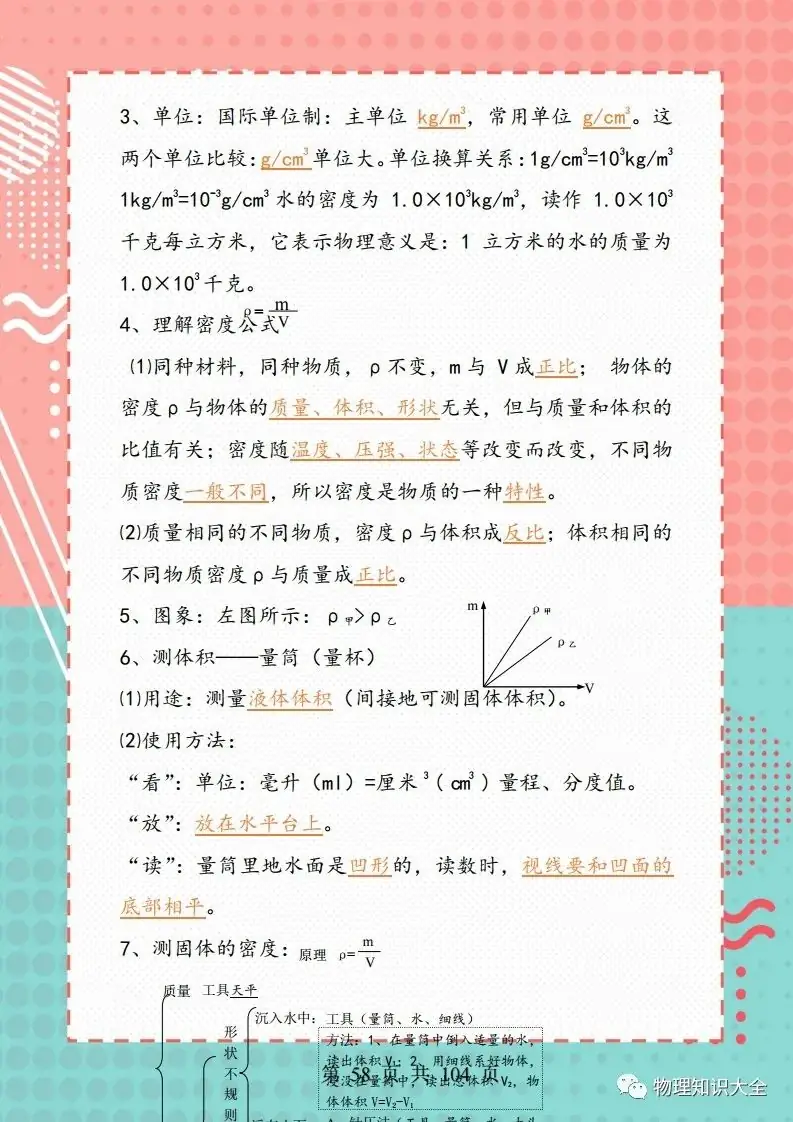 3、单位：国际单位制：主单位 kg/m³，常用单位 g/cm³。这
两个单位比较：g/cm³单位大。单位换算关系：1g/cm³=10³kg/m³
1kg/m³=10⁻³g/cm³ 水的密度为 1.0×10³kg/m³，读作 1.0×10³
千克每立方米，它表示物理意义是：1 立方米的水的质量为
1.0×10³千克。
4、理解密度公式 ρ=m/V
⑴同种材料，同种物质，ρ不变，m与 V成正比； 物体的
密度ρ与物体的质量、体积、形状无关，但与质量和体积的
比值有关；密度随温度、压强、状态等改变而改变，不同物
质密度一般不同，所以密度是物质的一种特性。
⑵质量相同的不同物质，密度ρ与体积成反比；体积相同的
不同物质密度ρ与质量成正比。
5、图象：左图所示：ρ甲>ρ乙
m
ρ甲
ρ乙
V
6、测体积——量筒（量杯）
⑴用途：测量液体体积（间接地可测固体体积）。
⑵使用方法：
“看”：单位：毫升（ml）=厘米³（cm³）量程、分度值。
“放”：放在水平台上。
“读”：量筒里地水面是凹形的，读数时，视线要和凹面的
底部相平。
7、测固体的密度：原理 ρ=m/V
质量 工具天平
沉入水中：工具（量筒、水、细线）
形状不规则
方法：1、在量筒中倒入适量的水，
读出体积V₁；2、用细线系好物体，
浸没在量筒中，读出总体积V₂，物
体体积V=V₂-V₁
第 58 页 共 104 页
物理知识大全